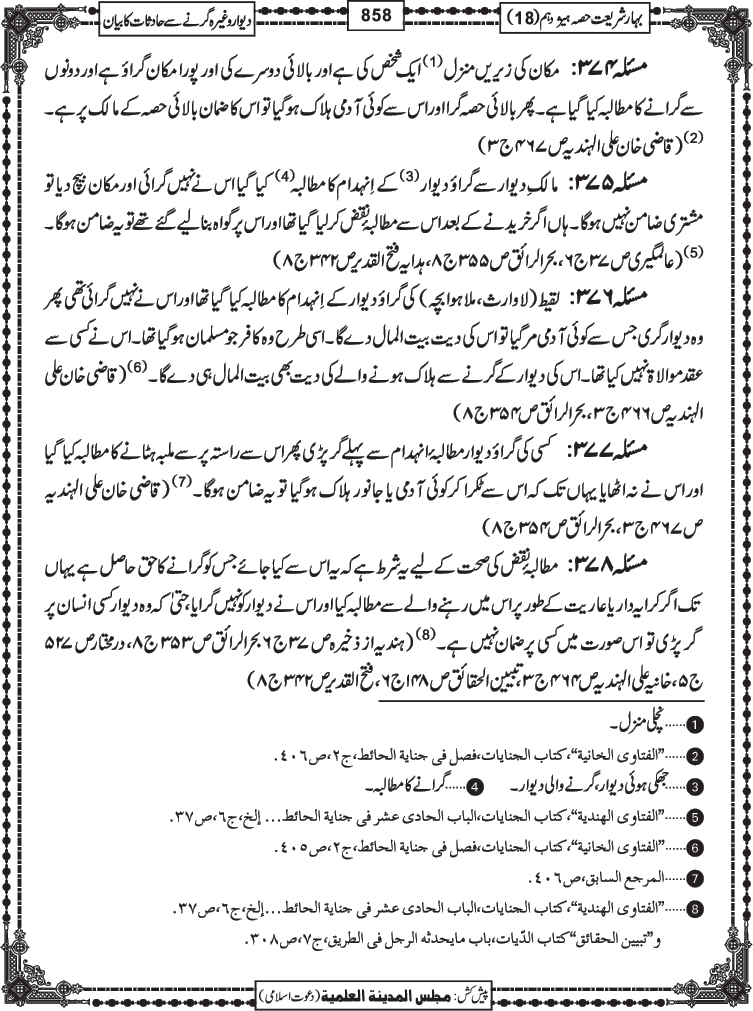 بہار شریعت حصہ ہیژدہم (18)
858
دیوار وغیرہ گرنے سے حادثات کا بیان
مسئلہ ۳۷۴: مکان کی زیریں منزل (1) ایک شخص کی ہے اور بالائی دوسرے کی اور پورا مکان گراؤ ہے اور دونوں
سے گرانے کا مطالبہ کیا گیا ہے۔ پھر بالائی حصہ گرا اور اس سے کوئی آدمی ہلاک ہوگیا تو اس کا ضمان بالائی حصہ کے مالک پر ہے۔
(2) (قاضی خان علی الہندیہ ص ۴۶۷ ج ۳)
مسئلہ ۳۷۵: مالکِ دیوار سے گراؤ دیوار (3) کے اِنہدام کا مطالبہ (4) کیا گیا اس نے نہیں گرائی اور مکان بیچ دیا تو
مشتری ضامن نہیں ہوگا۔ ہاں اگر خریدنے کے بعد اس سے مطالبۂ نقض کرلیا گیا تھا اور اس پر گواہ بنا لیے گئے تھے تو یہ ضامن ہوگا۔
(5) (عالمگیری ص ۳۷ ج ۶، بحر الرائق ص ۳۵۵ ج ۸، ہدایہ فتح القدیر ص ۳۴۲ ج ۸)
مسئلہ ۳۷۶: لقیط (لاوارث، ملا ہوا بچہ) کی گراؤ دیوار کے اِنہدام کا مطالبہ کیا گیا تھا اور اس نے نہیں گرائی تھی پھر
وہ دیوار گری جس سے کوئی آدمی مر گیا تو اس کی دیت بیت المال دے گا۔ اسی طرح وہ کافر جو مسلمان ہوگیا تھا۔ اس نے کسی سے
عقد موالاۃ نہیں کیا تھا۔ اس کی دیوار کے گرنے سے ہلاک ہونے والے کی دیت بھی بیت المال ہی دے گا۔ (6) (قاضی خان علی
الہندیہ ص ۴۶۶ ج ۳، بحر الرائق ص ۳۵۴ ج ۸)
مسئلہ ۳۷۷: کسی کی گراؤ دیوار مطالبۂ انہدام سے پہلے گر پڑی پھر اس سے راستہ پر سے ملبہ ہٹانے کا مطالبہ کیا گیا
اور اس نے نہ اٹھایا یہاں تک کہ اس سے ٹکرا کر کوئی آدمی یا جانور ہلاک ہوگیا تو یہ ضامن ہوگا۔ (7) (قاضی خان علی الہندیہ
ص ۴۶۷ ج ۳، بحر الرائق ص ۳۵۴ ج ۸)
مسئلہ ۳۷۸: مطالبۂ نقض کی صحت کے لیے یہ شرط ہے کہ یہ اس سے کیا جائے جس کو گرانے کا حق حاصل ہے یہاں
تک اگر کرایہ دار یا عاریت کے طور پر اس میں رہنے والے سے مطالبہ کیا اور اس نے دیوار کو نہیں گرایا، حتیٰ کہ وہ دیوار کسی انسان پر
گر پڑی تو اس صورت میں کسی پر ضمان نہیں ہے۔ (8) (ہندیہ از ذخیرہ ص ۳۷ ج ۶ بحر الرائق ص ۳۵۳ ج ۸، درمختار ص ۵۲۷
ج ۵، خانیہ علی الہندیہ ص ۴۶۴ ج ۳، تبیین الحقائق ص ۱۴۸ ج ۶، فتح القدیر ص ۳۴۲ ج ۸)
1 ......نچلی منزل۔
2 ......”الفتاوی الخانیة“، کتاب الجنایات، فصل فی جنایة الحائط، ج۲، ص۴۰۶.
3 ......جھکی ہوئی دیوار، گرنے والی دیوار۔ 4 ......گرانے کا مطالبہ۔
5 ......”الفتاوی الهندیة“، کتاب الجنایات، الباب الحادی عشر فی جنایة الحائط... إلخ، ج۶، ص۳۷.
6 ......”الفتاوی الخانیة“، کتاب الجنایات، فصل فی جنایة الحائط، ج۲، ص۴۰۵.
7 ......المرجع السابق، ص۴۰۶.
8 ......”الفتاوی الهندیة“، کتاب الجنایات، الباب الحادی عشر فی جنایة الحائط...إلخ، ج۶، ص۳۷.
و”تبیین الحقائق“ کتاب الدّیات، باب مایحدثه الرجل فی الطریق، ج۷، ص۳۰۸.
پیش کش: مجلس المدینة العلمیة (دعوت اسلامی)